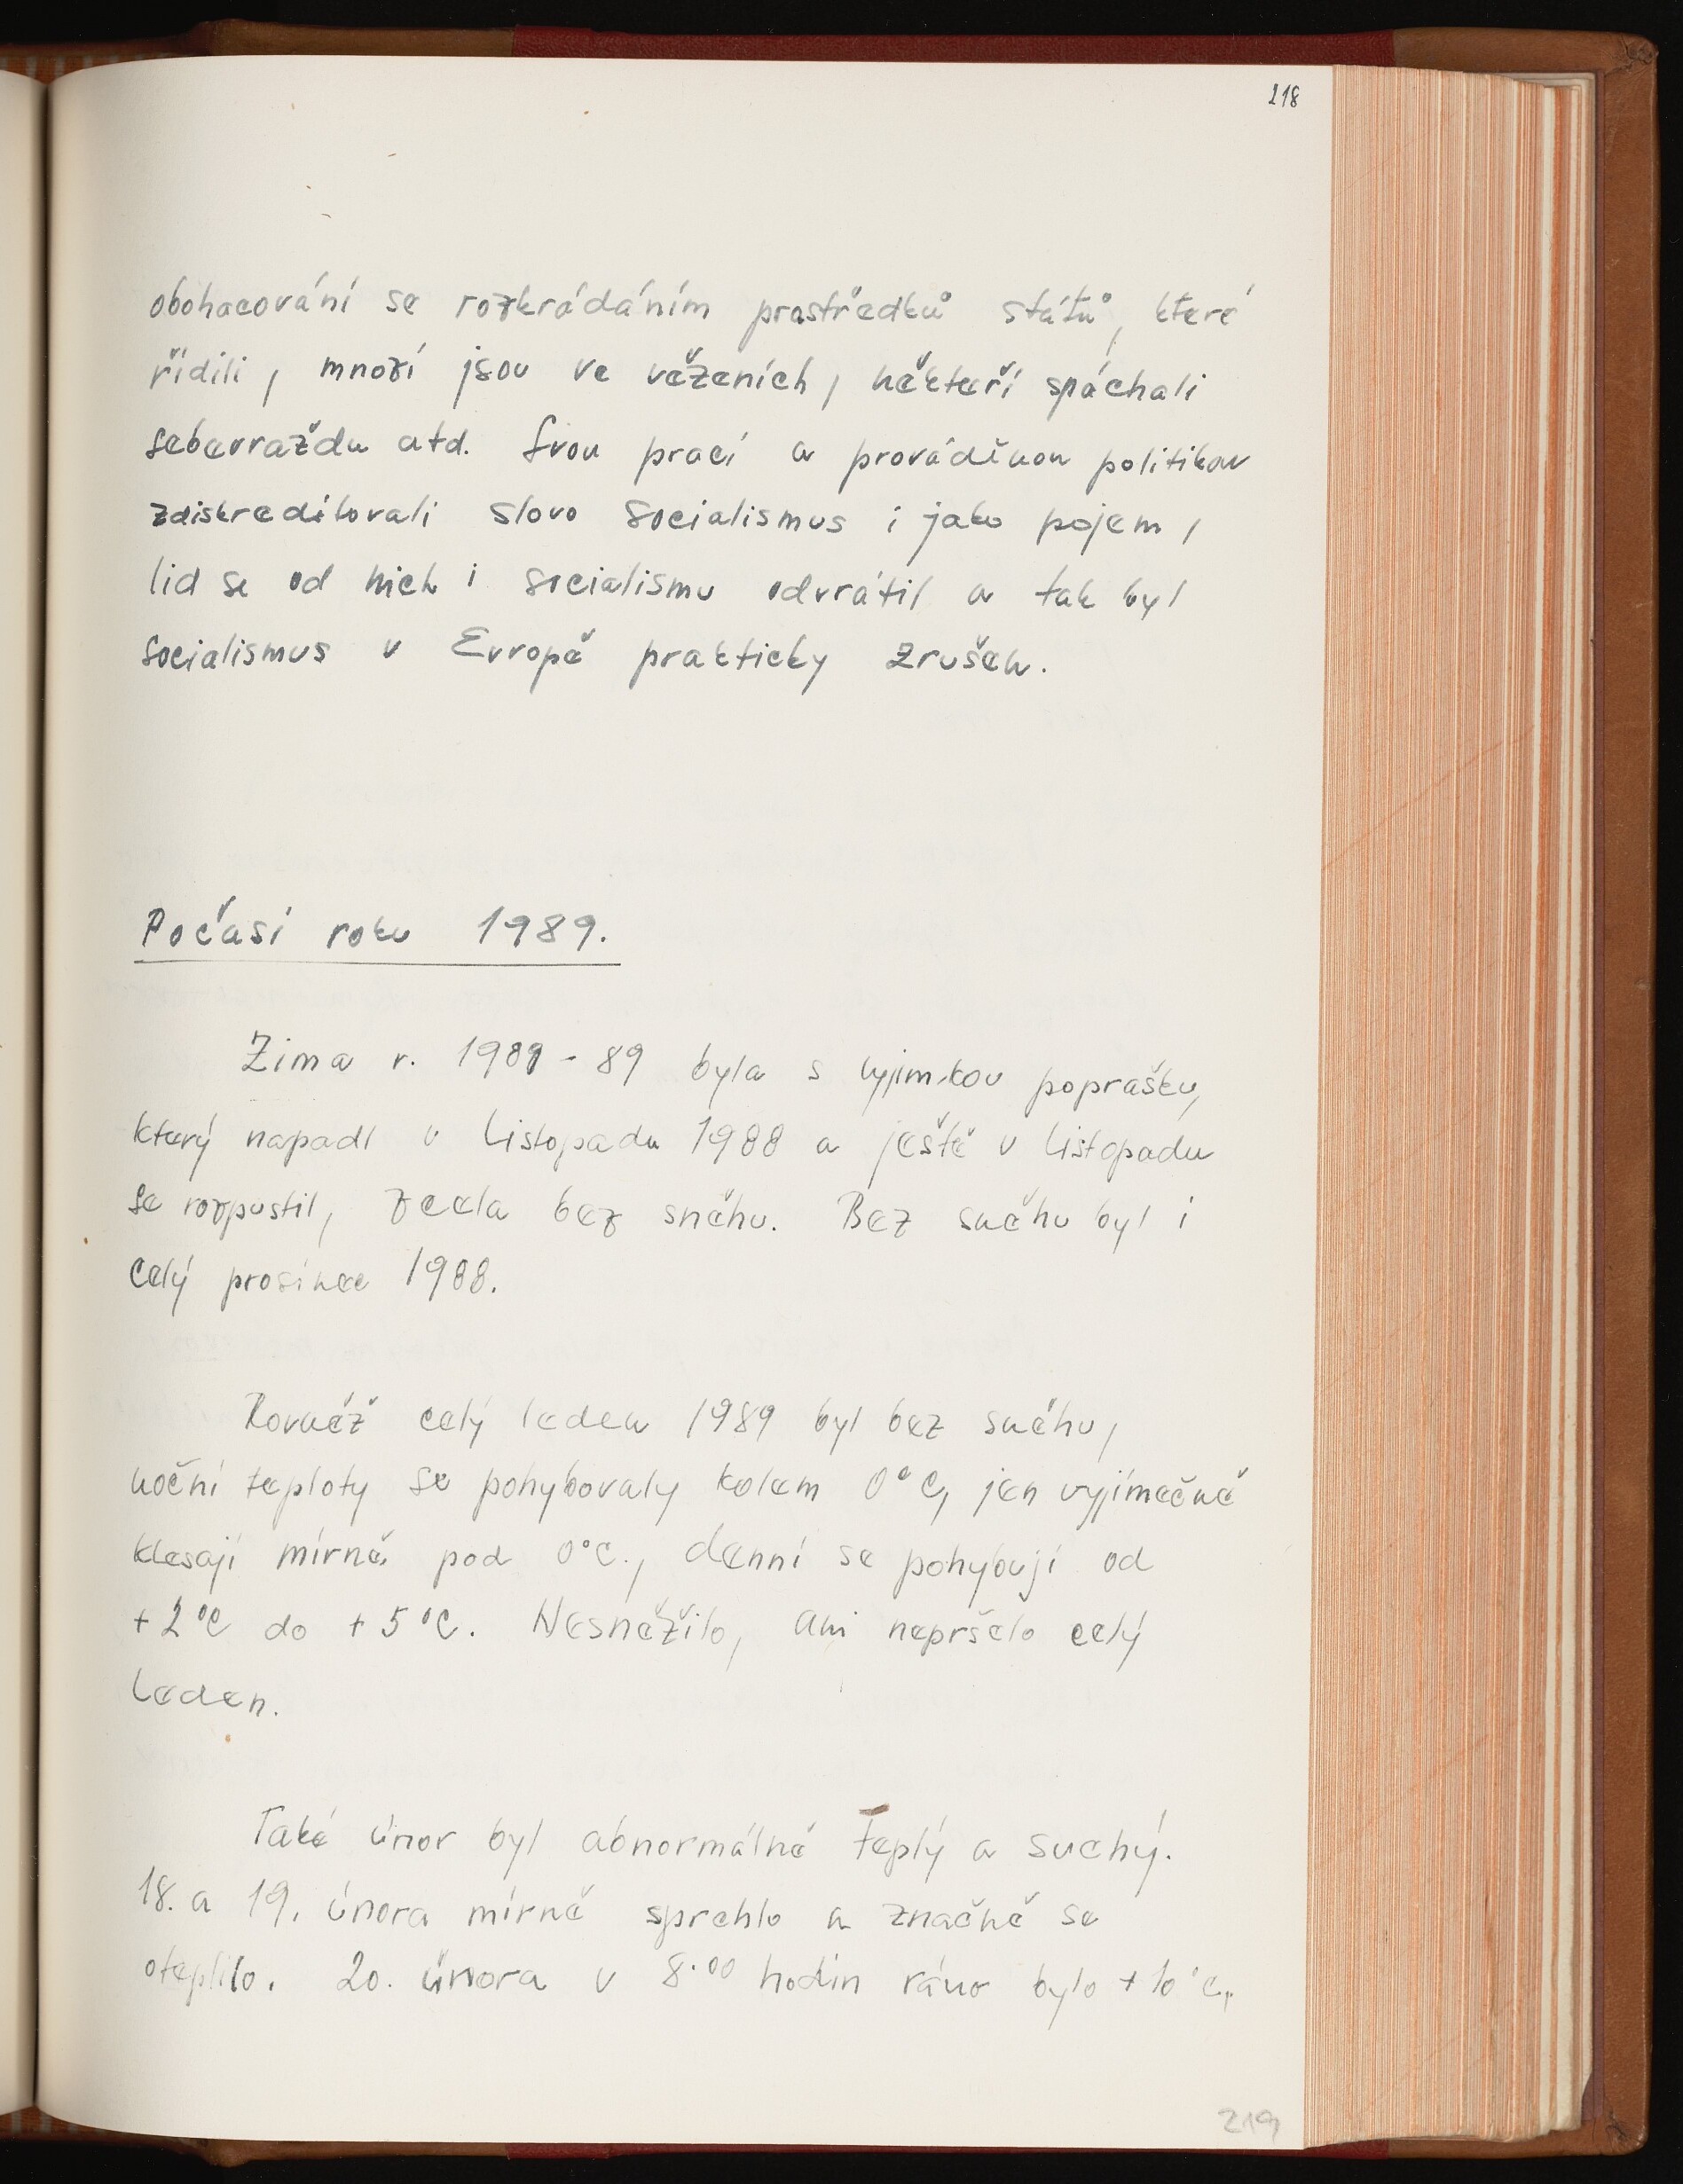 218
obohacování se rozkrádáním prostředků států, které
řídili, mnozí jsou ve vězeních, někteří spáchali
sebevraždu atd. Svou prací a prováděnou politikou
zdiskreditovali slovo socialismus i jako pojem,
lid se od nich i socialismu odvrátil a tak byl
socialismus v Evropě prakticky zrušen.
Počasí roku 1989.
Zima r. 1988 - 89 byla s vyjimkou poprašku,
který napadl v listopadu 1988 a ještě v listopadu
se rozpustil, zcela bez sněhu. Bez sněhu byl i
celý prosinec 1988.
Rovněž celý leden 1989 byl bez sněhu,
noční teploty se pohybovaly kolem 0°C, jen vyjímečně
klesají mírně pod 0°C., denní se pohybují od
+2°C do +5°C. Nesněžilo, ani nepršelo celý
leden.
Také únor byl abnormálně teplý a suchý.
18. a 19. února mírně sprchlo a značně se
oteplilo. 20. února v 8.00 hodin ráno bylo +10°C,
219